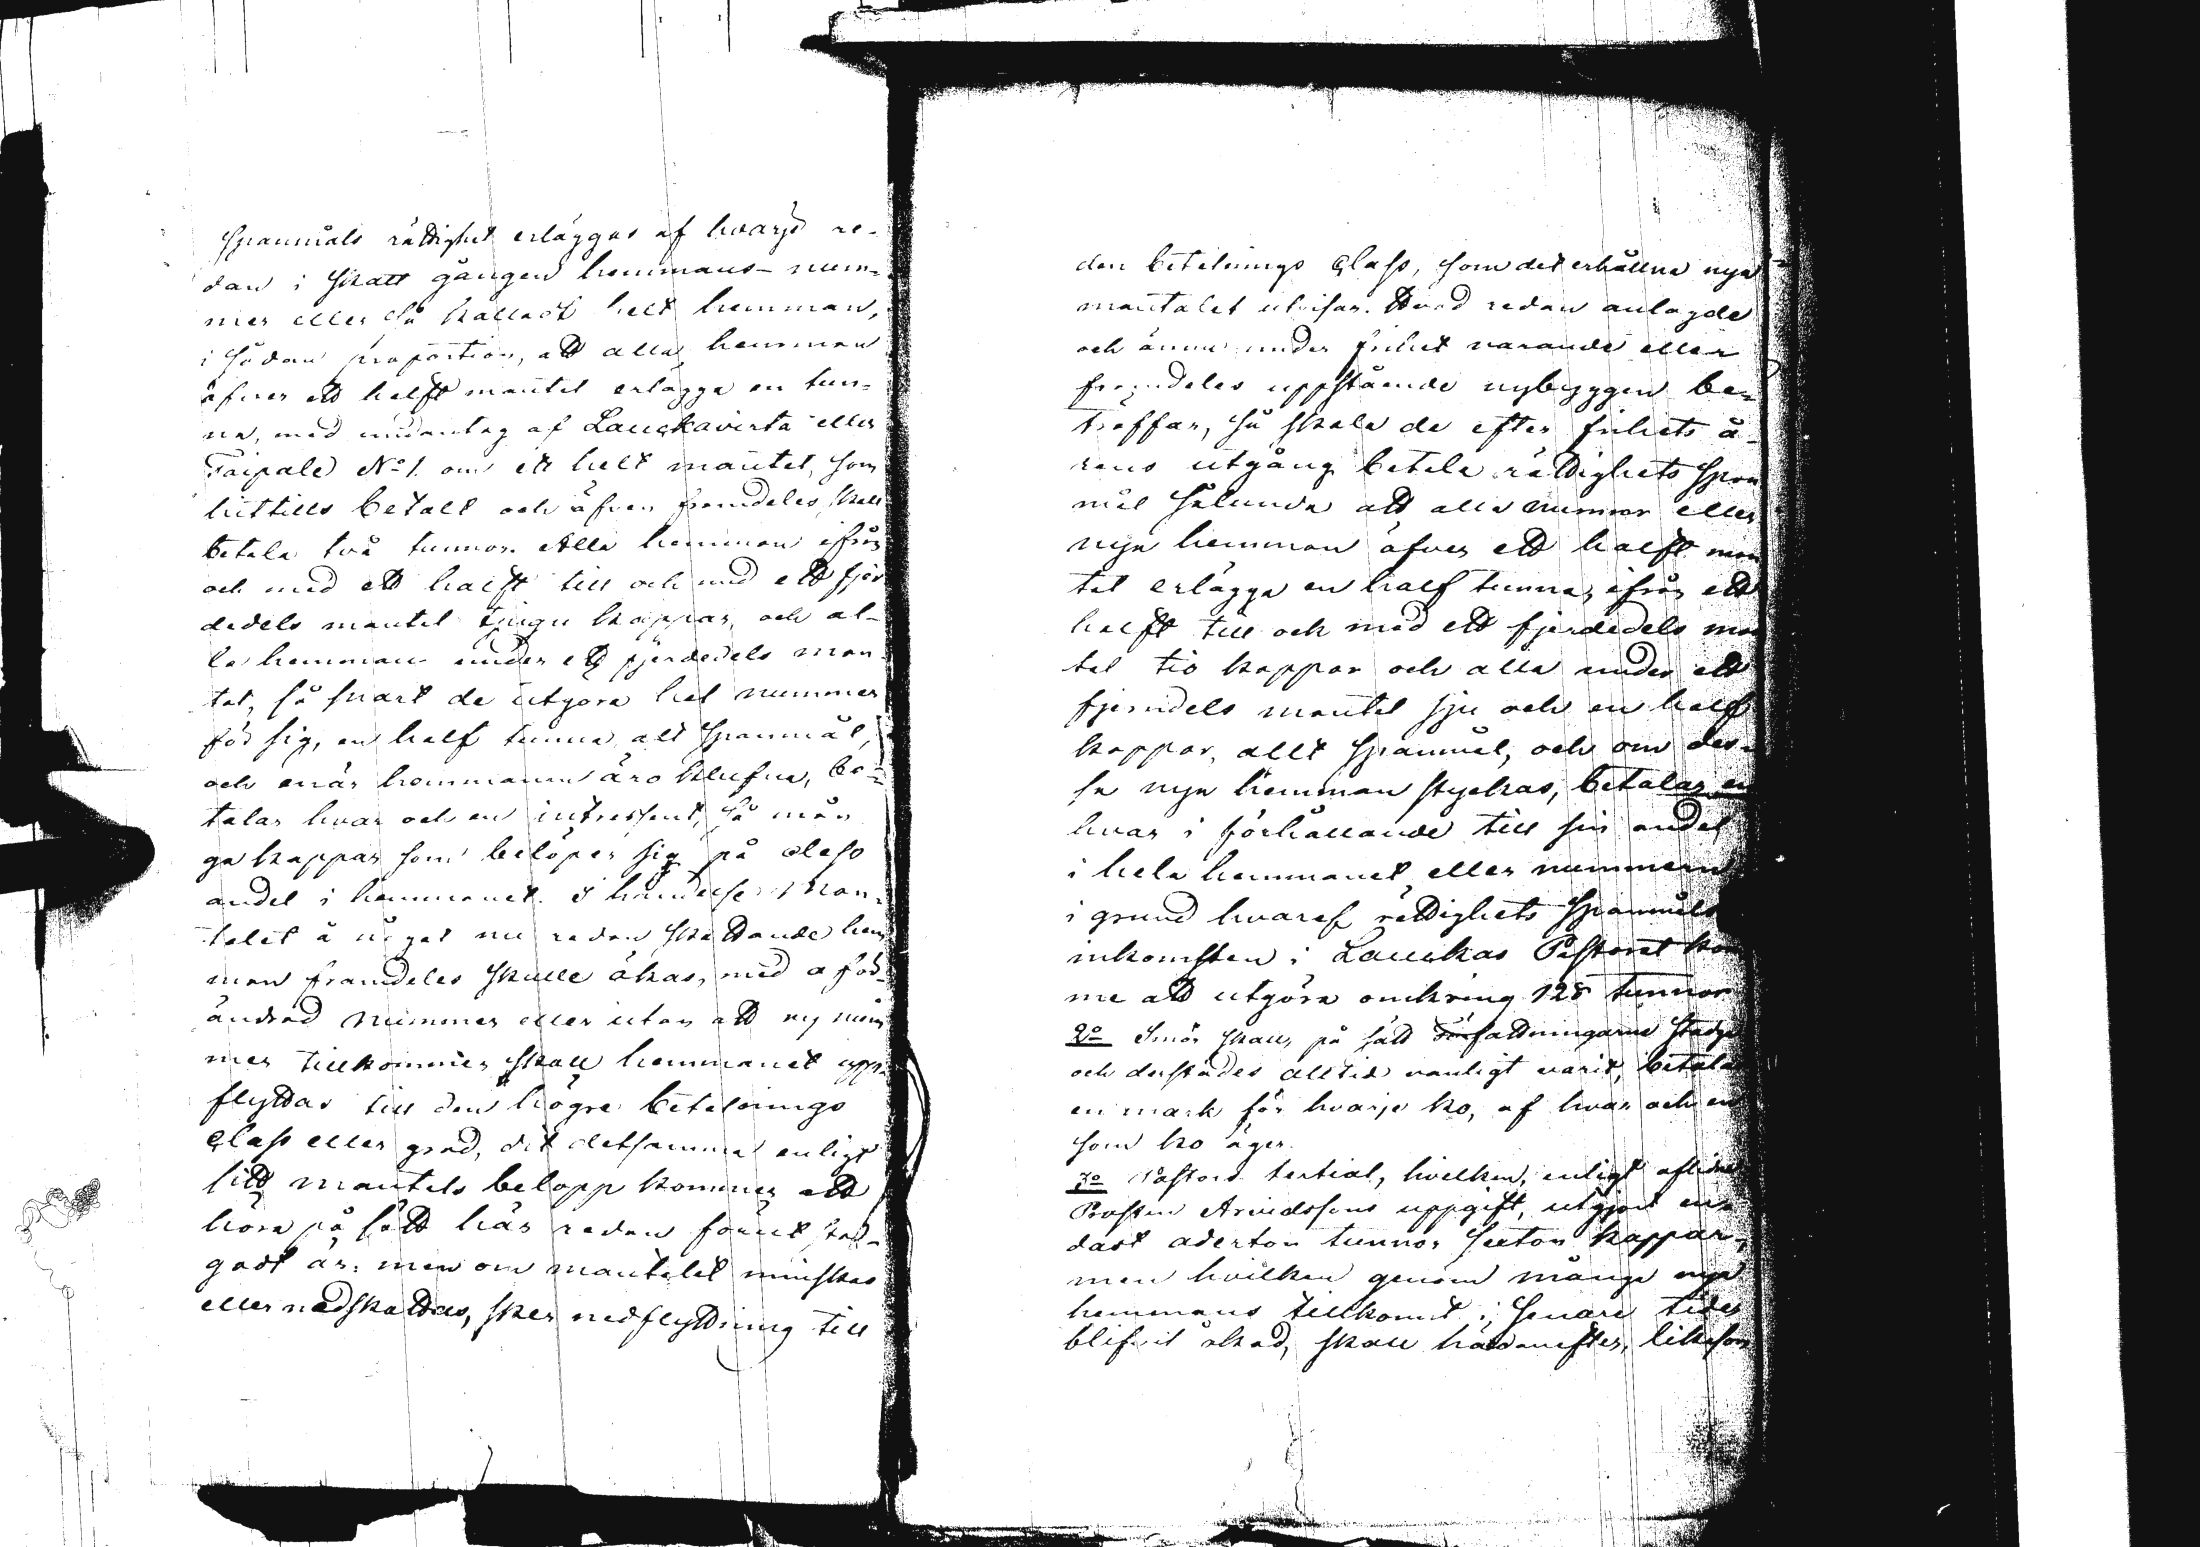 spanmåls rättighet erlägges af hvarje re-
dan i skatt gången hemmans-num-
mer eller så kalladt helt hemman,
i sådan proportion, att alla hemman
öfver ett halft mantal erlägga en tun-
na, med undantag af Lauckavirta eller
Taipale No 1. om ett helt mantal, som
hittills betalt och äfven framdeles skall
betala två tunnor. Alla hemman ifrån
och med ett halft till och med ett fjer
dedels mantal tjugu kappar, och al-
la hemman under ett fjerdedels man-
tal, så snart de utgöra hel nummer
för sig, en half tunna, allt spanmål,
och enär hemmanen äro klufne, be-
talar hvar och en intressent, så mån
ga kappar som belöper sig på dess
andel i hemmanet. I händelse Man-
talet å något nu redan skattande hem
man framdeles skulle ökas, med oför-
ändrad nummer eller utan att ny num
mer tillkommer skall hemmanet upp-
flyttas till den högre betalnings
Class eller grad, dit detsamma enligt
sitt mantals belopp kommer att
höra på sätt här redan förut stad-
gadt är: men om mantalet minskas
eller nedskattas, sker nedflyttning till
den betalnings Class, som det erhållna nya
mantalet utvisar. Hvad redan anlagde
och ännu under frihet varande eller
framdeles uppstående nybyggen be-
träffar, så skola de efter frihets å-
rens utgång betala rättighets span
mål sålunda att alla nummer eller
nya hemman öfver ett halft man
tal erlägga en half tunna, ifrån ett
halft till och med ett fjerdedels man
tal tio kappar och alla under ett
fjerndels mantal sju och en half
kappar, allt spanmål, och om des-
sa nya hemman styckas, betalar en
hvar i förhållande till sin andel
i hela hemmanet eller nummern
i grund hvaraf rättighets spanmåls
inkomsten i Lauckas Pastorat kom
me att utgöra omkring 128 tunnor
2o Smör skall, på sätt författningarne stadga
och derstädes alltid vanligt varit, betalas
en mark för hvarje ko, af hvar och en
som ko äger.
3o Pastors tertial, hvilken, enligt aflidne
Prosten Arvidssons uppgift, utgjort en-
dast aderton tunnor sexton kappar,
men hvilken genom många nya
hemmans tillkomst i senare tider
blifvit ökad, skall hädanefter, likasom